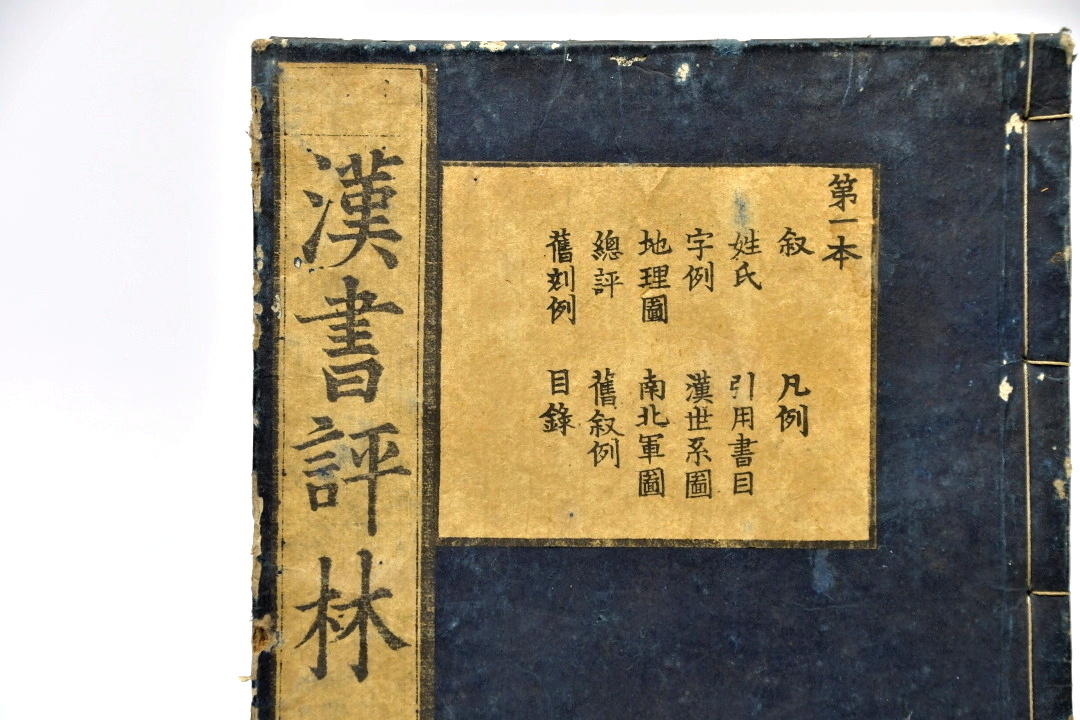 漢書評林
第一本
叙 凡例
姓氏 引用書目
字例 漢世系圖
地理圖 南北軍圖
總評 舊叙例
舊刻例 目錄